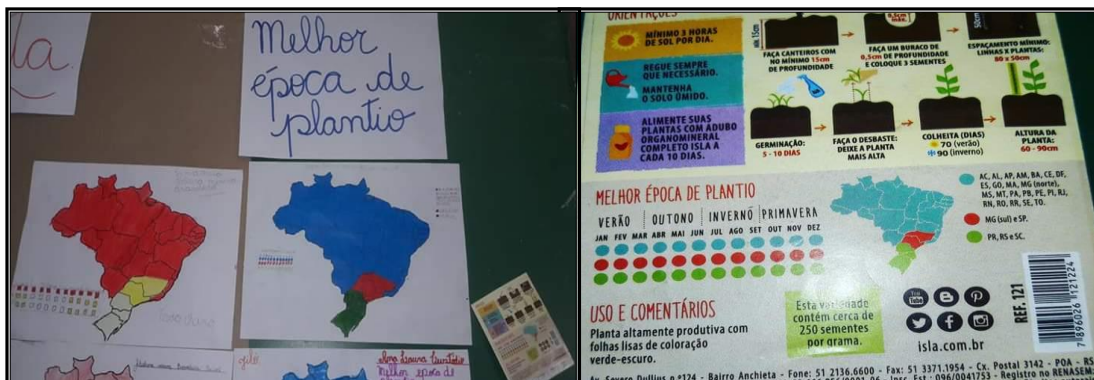 la
Melhor
época de
plantio
Melhor época de
ORIENTAÇÕES
MÍNIMO 3 HORAS
DE SOL POR DIA.
REGUE SEMPRE
QUE NECESSÁRIO.
MANTENHA
O SOLO ÚMIDO.
ALIMENTE SUAS
PLANTAS COM ADUBO
ORGANOMINERAL
COMPLETO ISLA A
CADA 10 DIAS.
mín. 15cm
FAÇA CANTEIROS COM
NO MÍNIMO 15cm
DE PROFUNDIDADE
0,5cm
máx.
FAÇA UM BURACO DE
0,5cm DE PROFUNDIDADE
E COLOQUE 3 SEMENTES
50cm
ESPAÇAMENTO MÍNIMO:
LINHAS X PLANTAS:
80 x 50cm
GERMINAÇÃO:
5 - 10 DIAS
FAÇA O DESBASTE:
DEIXE A PLANTA
MAIS ALTA
COLHEITA (DIAS)
70 (verão)
90 (inverno)
ALTURA DA
PLANTA:
60 - 90cm
MELHOR ÉPOCA DE PLANTIO
VERÃO OUTONO INVERNO PRIMAVERA
JAN FEV MAR ABR MAI JUN JUL AGO SET OUT NOV DEZ
AC, AL, AP, AM, BA, CE, DF,
ES, GO, MA, MG (norte),
MS, MT, PA, PB, PE, PI, RJ,
RN, RO, RR, SE, TO.
MG (sul) e SP.
PR, RS e SC.
USO E COMENTÁRIOS
Planta altamente produtiva com
folhas lisas de coloração
verde-escuro.
Esta variedade
contém cerca de
250 sementes
por grama.
You
Tube
isla.com.br
REF. 121
7896026 121224
Av. Severo Dullius n.º124 - Bairro Anchieta - Fone: 51 2136.6600 - Fax: 51 3371.1954 - Cx. Postal 3142 - POA - RS
Insc. Est.: 096/0041753 - Registro no RENASEM: